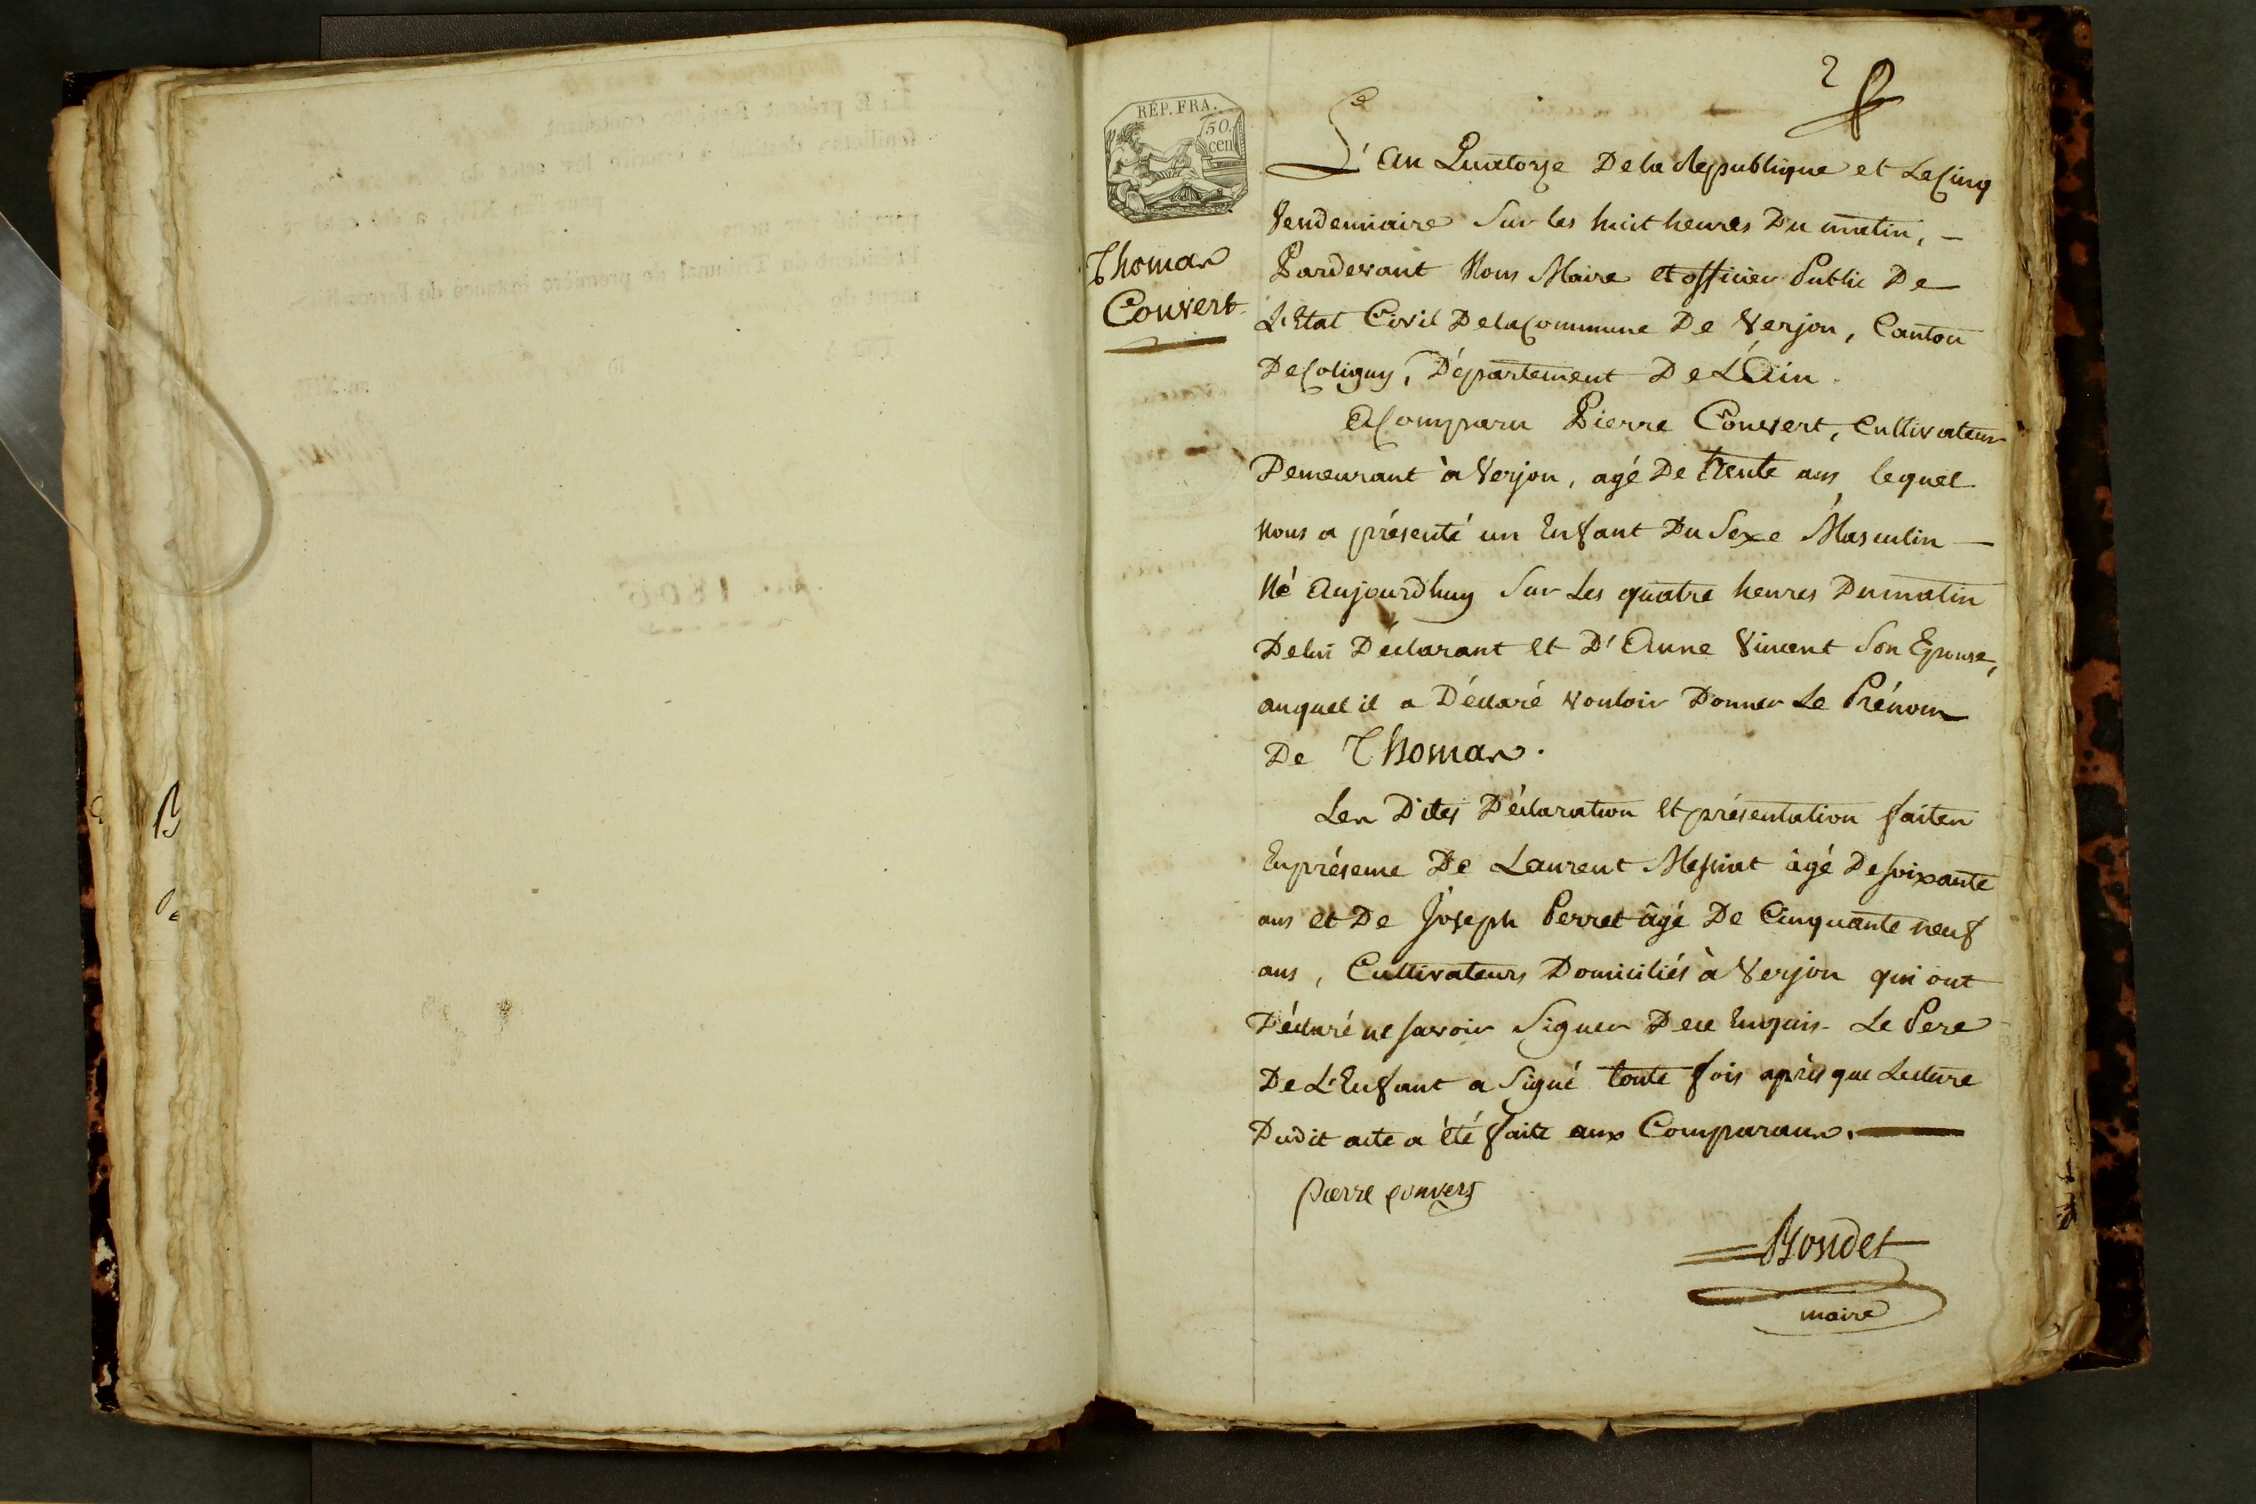 2
REP. FRA.
50.
cen
Thomas
Convert
L'an Quatorze De la Republique et Le Cinq
Vendemiaire Sur les huit heures Du matin, –
Pardevant Nous Maire et officier Public De
L'Etat Civil De la Commune De Verjon, Canton
De Coligny, Département De L'Ain.
A Comparu Pierre Convert, Cultivateur
Demeurant à Verjon, agé De trente ans, lequel
Nous a présenté un Enfant Du Sexe Masculin –
Né Aujourd'huy Sur Les quatre heures Du matin
De lui Déclarant et D'Anne Vincent Son Epouse,
auquel il a Déclaré vouloir Donner Le Prénom
De Thomas.
Les Dites Déclaration et présentation faites
En présence De Laurent Messiat âgé De soixante
ans et De Joseph Perret âgé De Cinquante neuf
ans, Cultivateurs Domiciliés à Verjon qui ont
Déclaré ne savoir Signer De ce Enquis. Le Pere
De L'Enfant a Signé toute fois après que Lecture
Dudit acte a été faite aux Comparans.
pierre convers
Bondet
maire